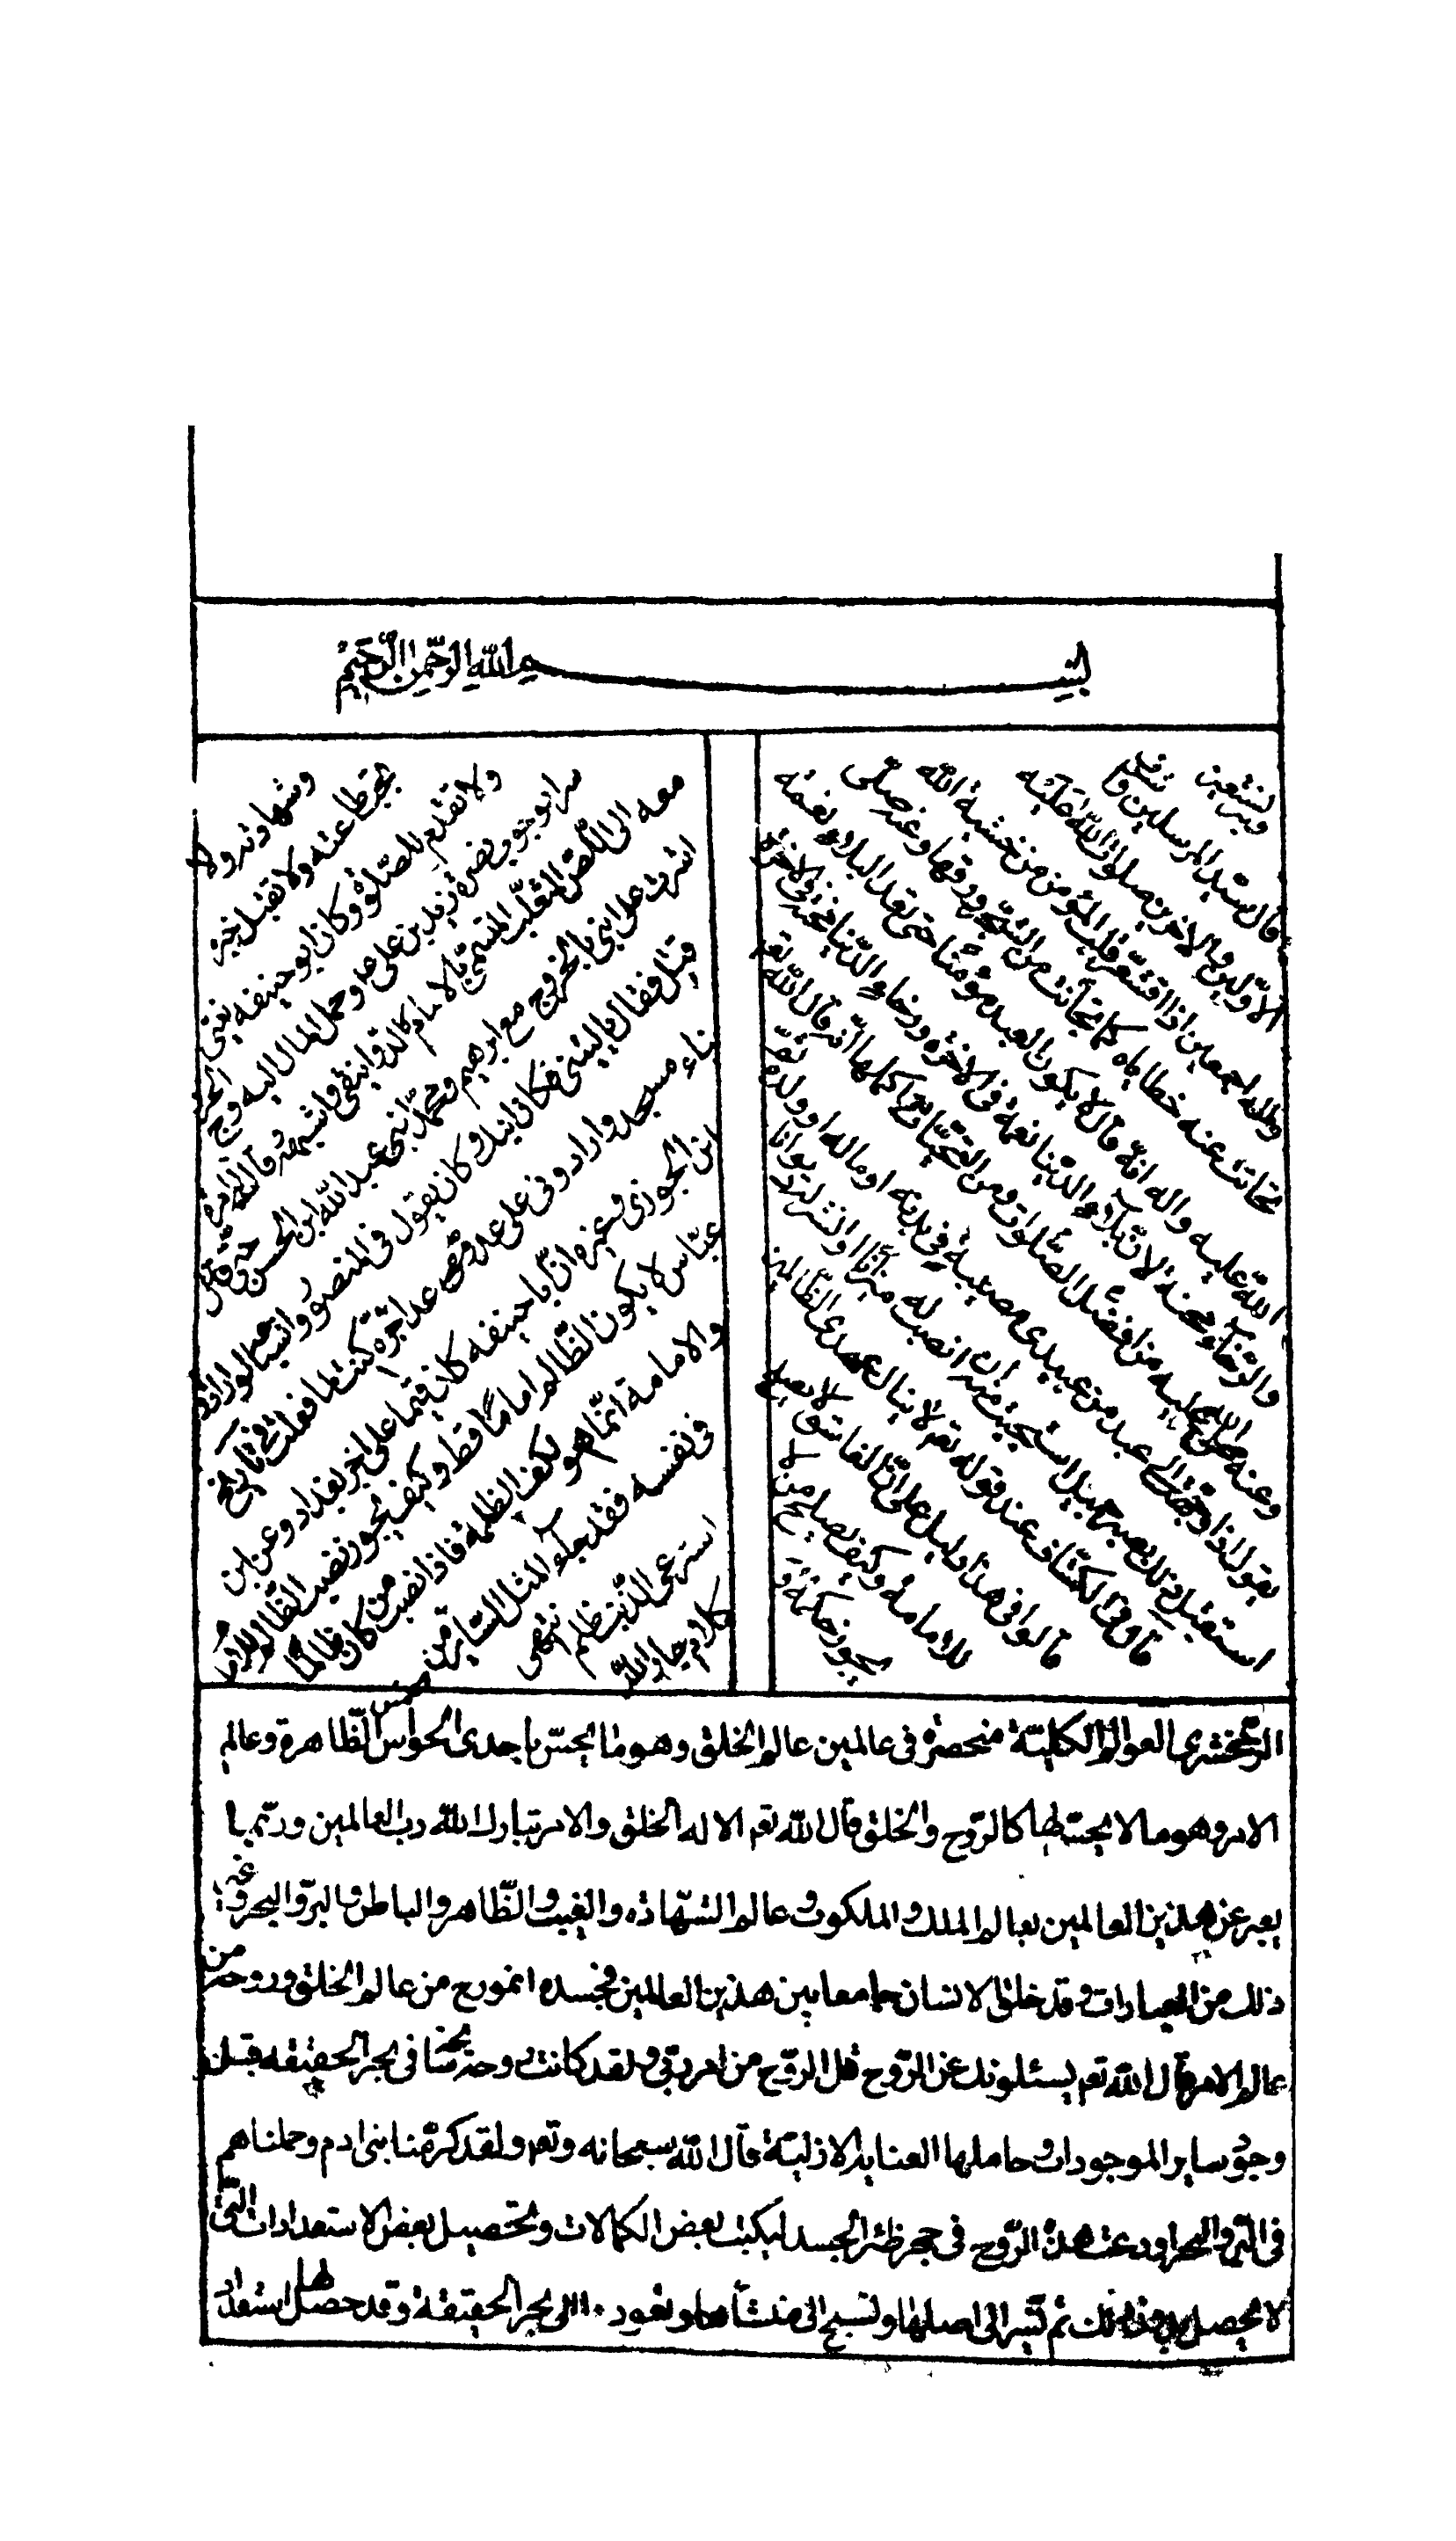 بسم الله الرحمن الرحيم
وبه نستعين
قال سيد المرسلين
الاولين والاخرين صلوات الله عليه
واله اجمعين اذا اقشعر قلب المؤمن من خشية الله
تحاتت عنه خطاياه كما تحاتت من الشجر ورقها وعنه صلى
الله عليه واله انه قال لا يكون العبد مؤمنا حتى يعد البلاء نعمة
والرخاء محنة لان بلاء الدنيا نعمة فى الاخرة ورخاء الدنيا محنة فى الاخرة
وعنه صلى الله عليه من افضل الصلوات ومن التحيات اكملها انه قال الله تعم
يقول اذا وجهت الى عبد من عبيدى مصيبة فى بدنه او ماله او ولده ثم
استقبل ذلك بصبر جميل استحييت منه ان انصب له ميزانا او انشر له ديوانا
قال فى الكشاف عند قوله تعم لا ينال عهدى الظالمين
قالوا فى هذا دليل على ان الفاسق لا يصلح
للامامة وكيف يصلح من لا
يجوز حكمه و
وشهادته ولا
يجب طاعته ولا تقبل خبره
ولا تقدم للصلوة وكان ابو حنيفه يفتى
سرا بوجوب نصرة زيد بن على وحمل المال اليه والخروج
معه الى اللص المتغلب المتسمى بالامام كالدوانيقى واشباهه قالت له امرأة
اشرت على ابنى بالخروج مع ابرهيم ومحمد ابنى عبد الله ابن الحسن حتى قتل
قتل فقال يا ليتنى مكان ابنك وكان يقول فى المنصور واشياعه لو ارادوا
بناء مسجد وارادونى على عد اجره لما فعلت
ابن الجوزى وغيره ان ابا حنيفه وعن ابن
عباس لا يكون الظالم اماما قط وكيف يجوز نصب الظالم
والامامة انما هو لكف الظلمة فاذا نصب من كان ظالما
فى نفسه فقد جاء المثل السائر من
استرعى الذئب ظلم انتهى
كلام جار الله
الزمخشرى العوالم الكلية منحصرة فى عالمين عالم الخلق وهو ما يحس باحدى الحواس الظاهرة وعالم
الامر وهو ما لا يحس بها كالروح والخلق قال الله تعم الا له الخلق والامر تبارك الله رب العالمين وربما
يعبر عن هذين العالمين بعالم الملك والملكوت وعالم الشهادة والغيب والظاهر والباطن والبر والبحر وغير
ذلك من العبارات وقد خلق الانسان جامعا بين هذين العالمين فجسده انموذج من عالم الخلق وروحه من
عالم الامر قال الله تعم يسئلونك عن الروح قل الروح من امر ربى ولقد كانت روحه فى بحر الحقيقه قبل
وجود ساير الموجودات وحاملها العناية الازلية قال الله سبحانه وتعم ولقد كرمنا بنى ادم وحملناهم
فى البر والبحر اودعت هذه الروح فى حجر ظئر الجسد ليكتسب بعض الكمالات وتحصيل بعض الاستعدادات التى
لا يحصل بدون ذلك ثم تسير الى اصلها وتسبح الى منشأها وتعود الى بحر الحقيقة وقد حصل لها استعداد